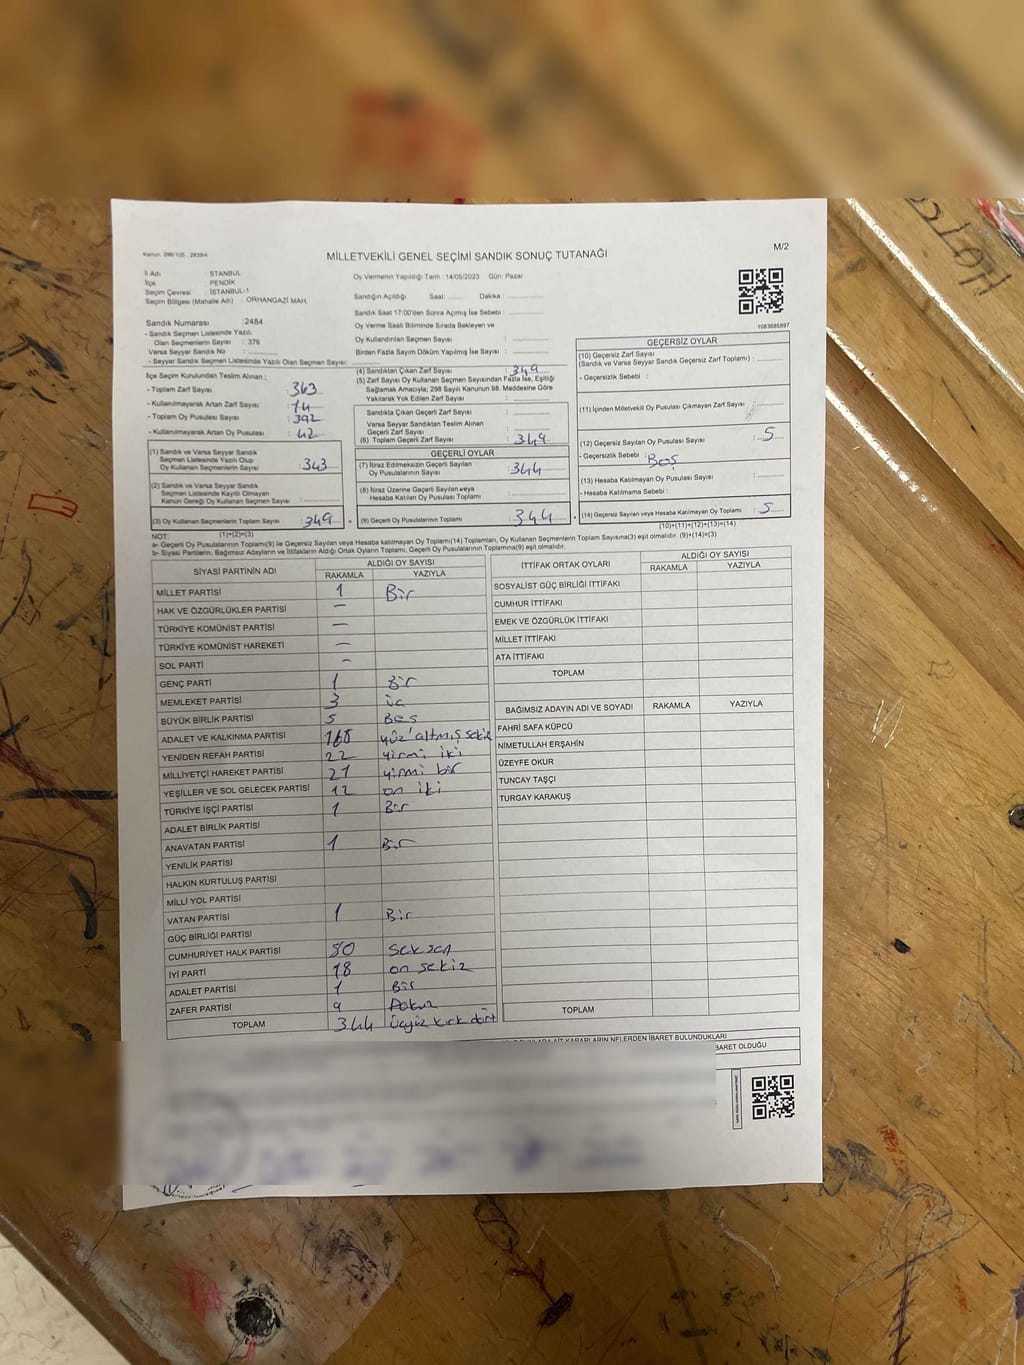 Kanun. 298/105 . 2839/4
MİLLETVEKİLİ GENEL SEÇİMİ SANDIK SONUÇ TUTANAĞI
M/2
İl Adı : İSTANBUL
İlçe : PENDİK
Seçim Çevresi : İSTANBUL-1
Seçim Bölgesi (Mahalle Adı) : ORHANGAZİ MAH.
Sandık Numarası :2484
- Sandık Seçmen Listesinde Yazılı
Olan Seçmenlerin Sayısı : 378
Varsa Seyyar Sandık No :
- Seyyar Sandık Seçmen Listesinde Yazılı Olan Seçmen Sayısı:
İlçe Seçim Kurulundan Teslim Alınan ;
- Toplam Zarf Sayısı : 363
- Kullanılmayarak Artan Zarf Sayısı : 14
- Toplam Oy Pusulası Sayısı : 392
- Kullanılmayarak Artan Oy Pusulası : 42
(1) Sandık ve Varsa Seyyar Sandık
Seçmen Listesinde Yazılı Olup
Oy Kullanan Seçmenlerin Sayısı : 343
(2) Sandık ve Varsa Seyyar Sandık
Seçmen Listesinde Kayıtlı Olmayan
Kanun Gereği Oy Kullanan Seçmen Sayısı :
(3) Oy Kullanan Seçmenlerin Toplam Sayısı : 349
(1)+(2)=(3)
Oy Vermenin Yapıldığı Tarih : 14/05/2023 Gün: Pazar
Sandığın Açıldığı Saat: Dakika :
Sandık Saat 17:00'den Sonra Açılmış İse Sebebi :
Oy Verme Saati Bitiminde Sırada Bekleyen ve
Oy Kullandırılan Seçmen Sayısı :
Birden Fazla Sayım Döküm Yapılmış İse Sayısı :
(4) Sandıktan Çıkan Zarf Sayısı : 349
(5) Zarf Sayısı Oy Kullanan Seçmen Sayısından Fazla İse, Eşitliği
Sağlamak Amacıyla; 298 Sayılı Kanunun 98. Maddesine Göre
Yakılarak Yok Edilen Zarf Sayısı :
Sandıkta Çıkan Geçerli Zarf Sayısı :
Varsa Seyyar Sandıktan Teslim Alınan
Geçerli Zarf Sayısı :
(6) Toplam Geçerli Zarf Sayısı : 349
GEÇERLİ OYLAR
(7) İtiraz Edilmeksizin Geçerli Sayılan
Oy Pusulalarının Sayısı : 344
(8) İtiraz Üzerine Geçerli Sayılan veya
Hesaba Katılan Oy Pusulası Toplamı :
(9) Geçerli Oy Pusulalarının Toplamı : 344
1083685897
GEÇERSİZ OYLAR
(10) Geçersiz Zarf Sayısı
(Sandık ve Varsa Seyyar Sandık Geçersiz Zarf Toplamı) :
- Geçersizlik Sebebi :
(11) İçinden Milletvekili Oy Pusulası Çıkmayan Zarf Sayısı :
(12) Geçersiz Sayılan Oy Pusulası Sayısı : 5
- Geçersizlik Sebebi : Boş
(13) Hesaba Katılmayan Oy Pusulası Sayısı :
- Hesaba Katılmama Sebebi :
(14) Geçersiz Sayılan veya Hesaba Katılmayan Oy Toplamı : 5
(10)+(11)+(12)+(13)=(14)
NOT:
a- Geçerli Oy Pusulalarının Toplamı(9) ile Geçersiz Sayılan veya Hesaba katılmayan Oy Toplamı(14) Toplamları, Oy Kullanan Seçmenlerin Toplam Sayısına(3) eşit olmalıdır. (9)+(14)=(3)
b- Siyasi Partilerin, Bağımsız Adayların ve İttifakların Aldığı Ortak Oyların Toplamı, Geçerli Oy Pusulalarının Toplamına(9) eşit olmalıdır.
SİYASİ PARTİNİN ADI ALDIĞI OY SAYISI
RAKAMLA YAZIYLA
MİLLET PARTİSİ 1 Bir
HAK VE ÖZGÜRLÜKLER PARTİSİ —
TÜRKİYE KOMÜNİST PARTİSİ —
TÜRKİYE KOMÜNİST HAREKETİ —
SOL PARTİ -
GENÇ PARTİ 1 Bir
MEMLEKET PARTİSİ 3 üç
BÜYÜK BİRLİK PARTİSİ 5 Beş
ADALET VE KALKINMA PARTİSİ 168 yüz altmış sekiz
YENİDEN REFAH PARTİSİ 22 yirmi iki
MİLLİYETÇİ HAREKET PARTİSİ 21 yirmi bir
YEŞİLLER VE SOL GELECEK PARTİSİ 12 on iki
TÜRKİYE İŞÇİ PARTİSİ 1 Bir
ADALET BİRLİK PARTİSİ
ANAVATAN PARTİSİ 1 Bir
YENİLİK PARTİSİ
HALKIN KURTULUŞ PARTİSİ
MİLLİ YOL PARTİSİ
VATAN PARTİSİ 1 Bir
GÜÇ BİRLİĞİ PARTİSİ
CUMHURİYET HALK PARTİSİ 80 seksen
İYİ PARTİ 18 on sekiz
ADALET PARTİSİ 1 Bir
ZAFER PARTİSİ 9 Dokuz
TOPLAM 344 Üçyüz kırk dört
İTTİFAK ORTAK OYLARI ALDIĞI OY SAYISI
RAKAMLA YAZIYLA
SOSYALİST GÜÇ BİRLİĞİ İTTİFAKI
CUMHUR İTTİFAKI
EMEK VE ÖZGÜRLÜK İTTİFAKI
MİLLET İTTİFAKI
ATA İTTİFAKI
TOPLAM
BAĞIMSIZ ADAYIN ADI VE SOYADI RAKAMLA YAZIYLA
FAHRİ SAFA KÜPCÜ
NİMETULLAH ERŞAHİN
ÜZEYFE OKUR
TUNCAY TAŞÇI
TURGAY KARAKUŞ
TOPLAM
KARARLARIN NELERDEN İBARET BULUNDUKLARI
BARET OLDUĞU